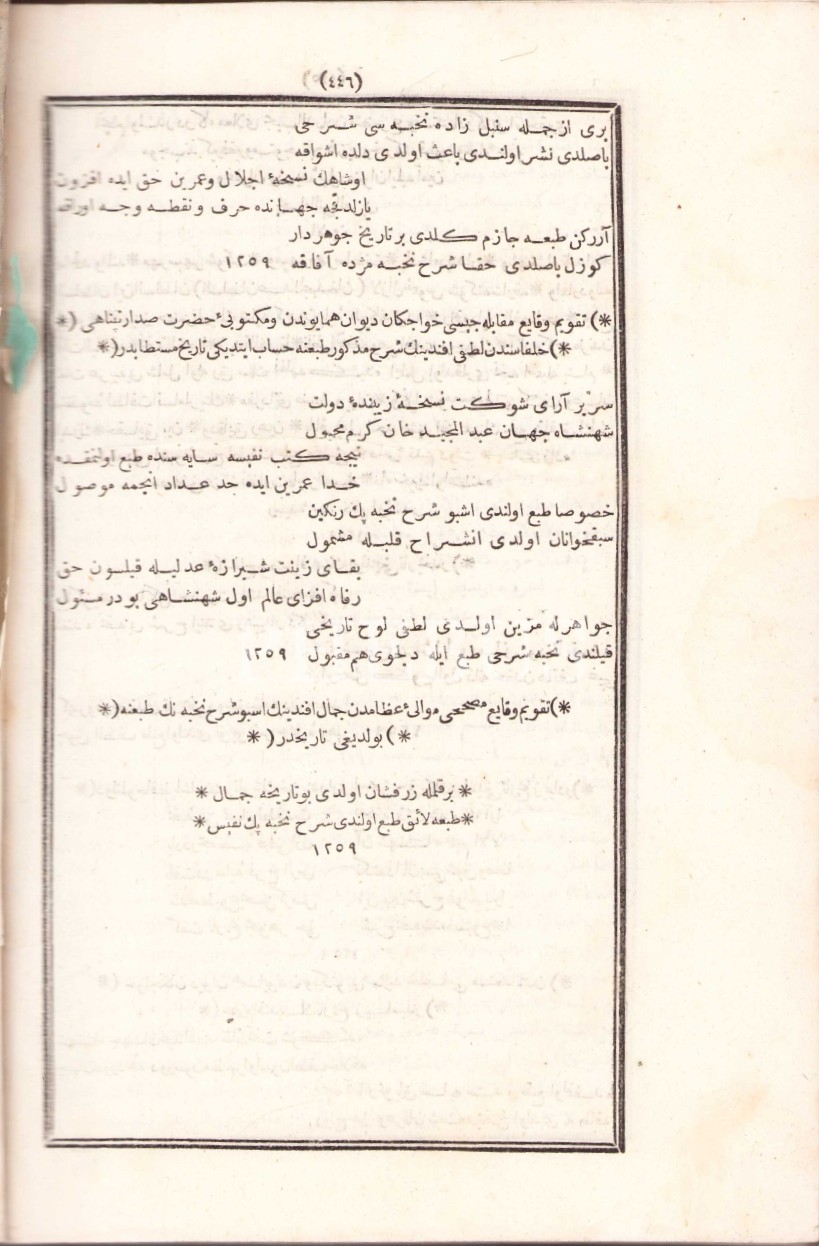 (٤٤٦)
بری از جمله سنبل زاده نخبه سی شرحی
باصلدی نشر اولندی باعث اولدی دلده اشواقه
اوشاهك نسخهٔ اجلال وعمرین حق ایده افزون
یازلدقجه جهانده حرف ونقطه وجه اوراقه
آررکن طبعه جازم کلدی بر تاریخ جوهردار
کوزل باصلدی حقا شرح نخبه مژده آفاقه ١٢٥٩
*) تقویم وقایع مقابله جیسی خواجکان دیوان همایوندن ومکتوبیٔ حضرت صدارتپناهی (*
*) خلفاسندن لطفی افندینك شرح مذکور طبعنه حساب ایتدیکی تاریخ مستطابدر (*
سریر آرای شوکت نسخهٔ زیبندهٔ دولت
شهنشاه جهان عبد المجید خان کرم مجبول
نیجه کتب نفیسه سایه سنده طبع اولنمقده
خدا عمرین ایده حد عداد انجمه موصول
خصوصا طبع اولندی اشبو شرح نخبه پك رنکین
سبقخوانان اولدی انشراح قلبله مشمول
بقای زینت شیرازهٔ عدلیله قیلسون حق
رفاه افزای عالم اول شهنشاهی بودر مسئول
جواهرله مزین اولدی لطفی لوح تاریخی
قیلندی نخبه شرحی طبع ایله دلجوی هم مقبول ١٢٥٩
*) تقویم وقایع مصححی موالیٔ عظامدن جمال افندینك اسبو شرح نخبه نك طبعنه (*
*) بولدیغی تاریخدر (*
* برقلمله زرفشان اولدی بوتاریخه جمال *
* طبعه لائق طبع اولندی شرح نخبه پك نفیس *
١٢٥٩